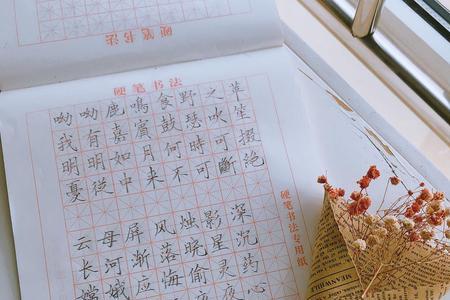 硬笔书法
硬笔书法
呦呦鹿鳴食野之苹
我有嘉賓鼓瑟吹笙
明明如月何時可掇
憂從中来不可斷絕
云母屏风烛影深
长河渐落晓星沉
嫦娥应悔偷灵药
夜心
硬笔书法专用纸
MEANWHILE